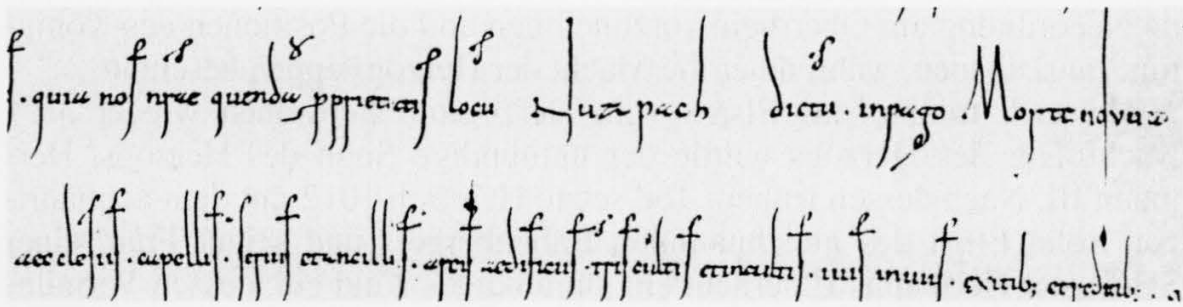 quia nos nrae quendā pprietatis locū dictū in pago Mortenouua.
aecclesiis . capellis . seruis et ancillis . areis aedificiis . tris cultis et incultis . uiis inuiis . exitib; et reditib;